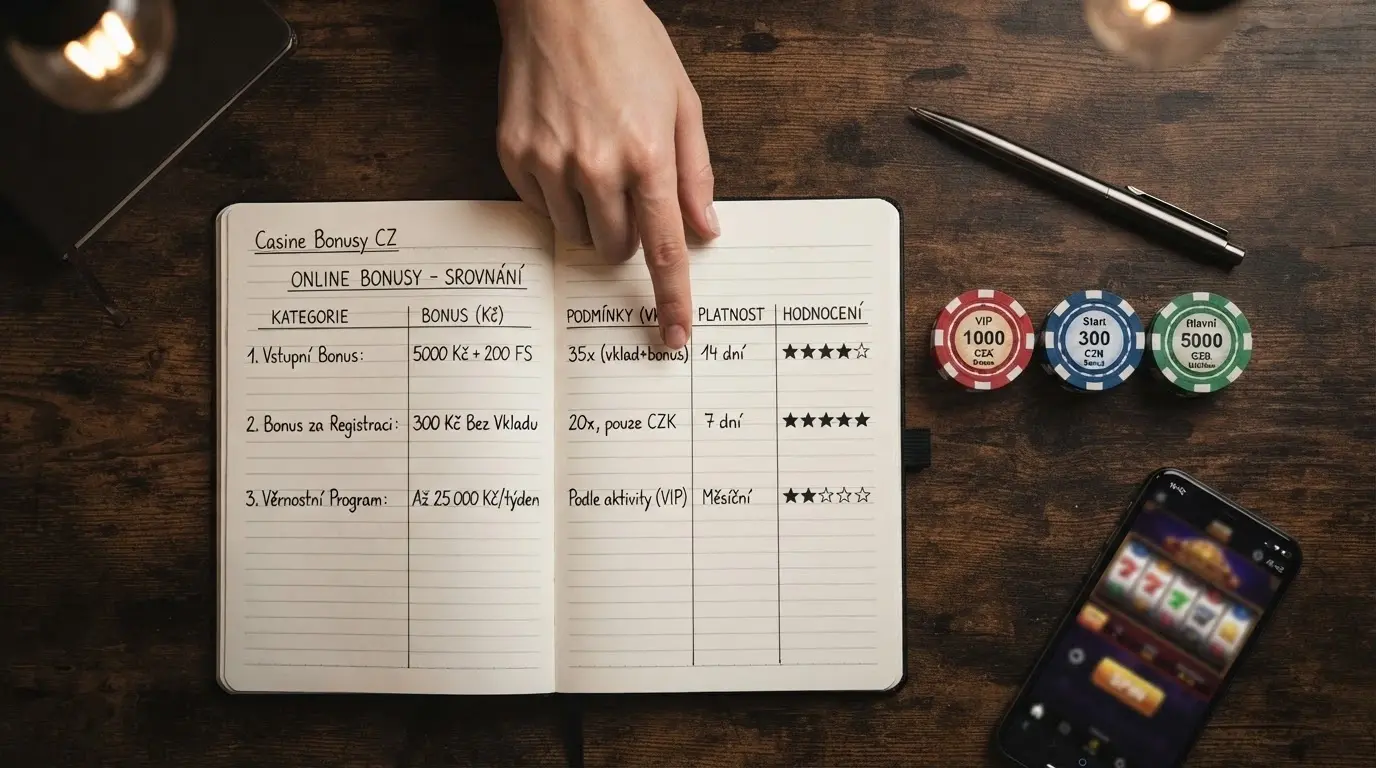 Casine Bonusy CZ
ONLINE BONUSY – SROVNÁNÍ
KATEGORIE BONUS (Kč) PODMÍNKY PLATNOST HODNOCENÍ
1. Vstupní Bonus: 5000 Kč + 200 FS 35x (vklad+bonus) 14 dní ★★★★☆
2. Bonus za Registraci: 300 Kč Bez Vkladu 20x, pouze CZK 7 dní ★★★★★
3. Věrnostní Program: Až 25 000 Kč/týden Podle aktivity (VIP) Měsíční ★★☆☆☆
VIP
1000
Start
300
CZN
5000